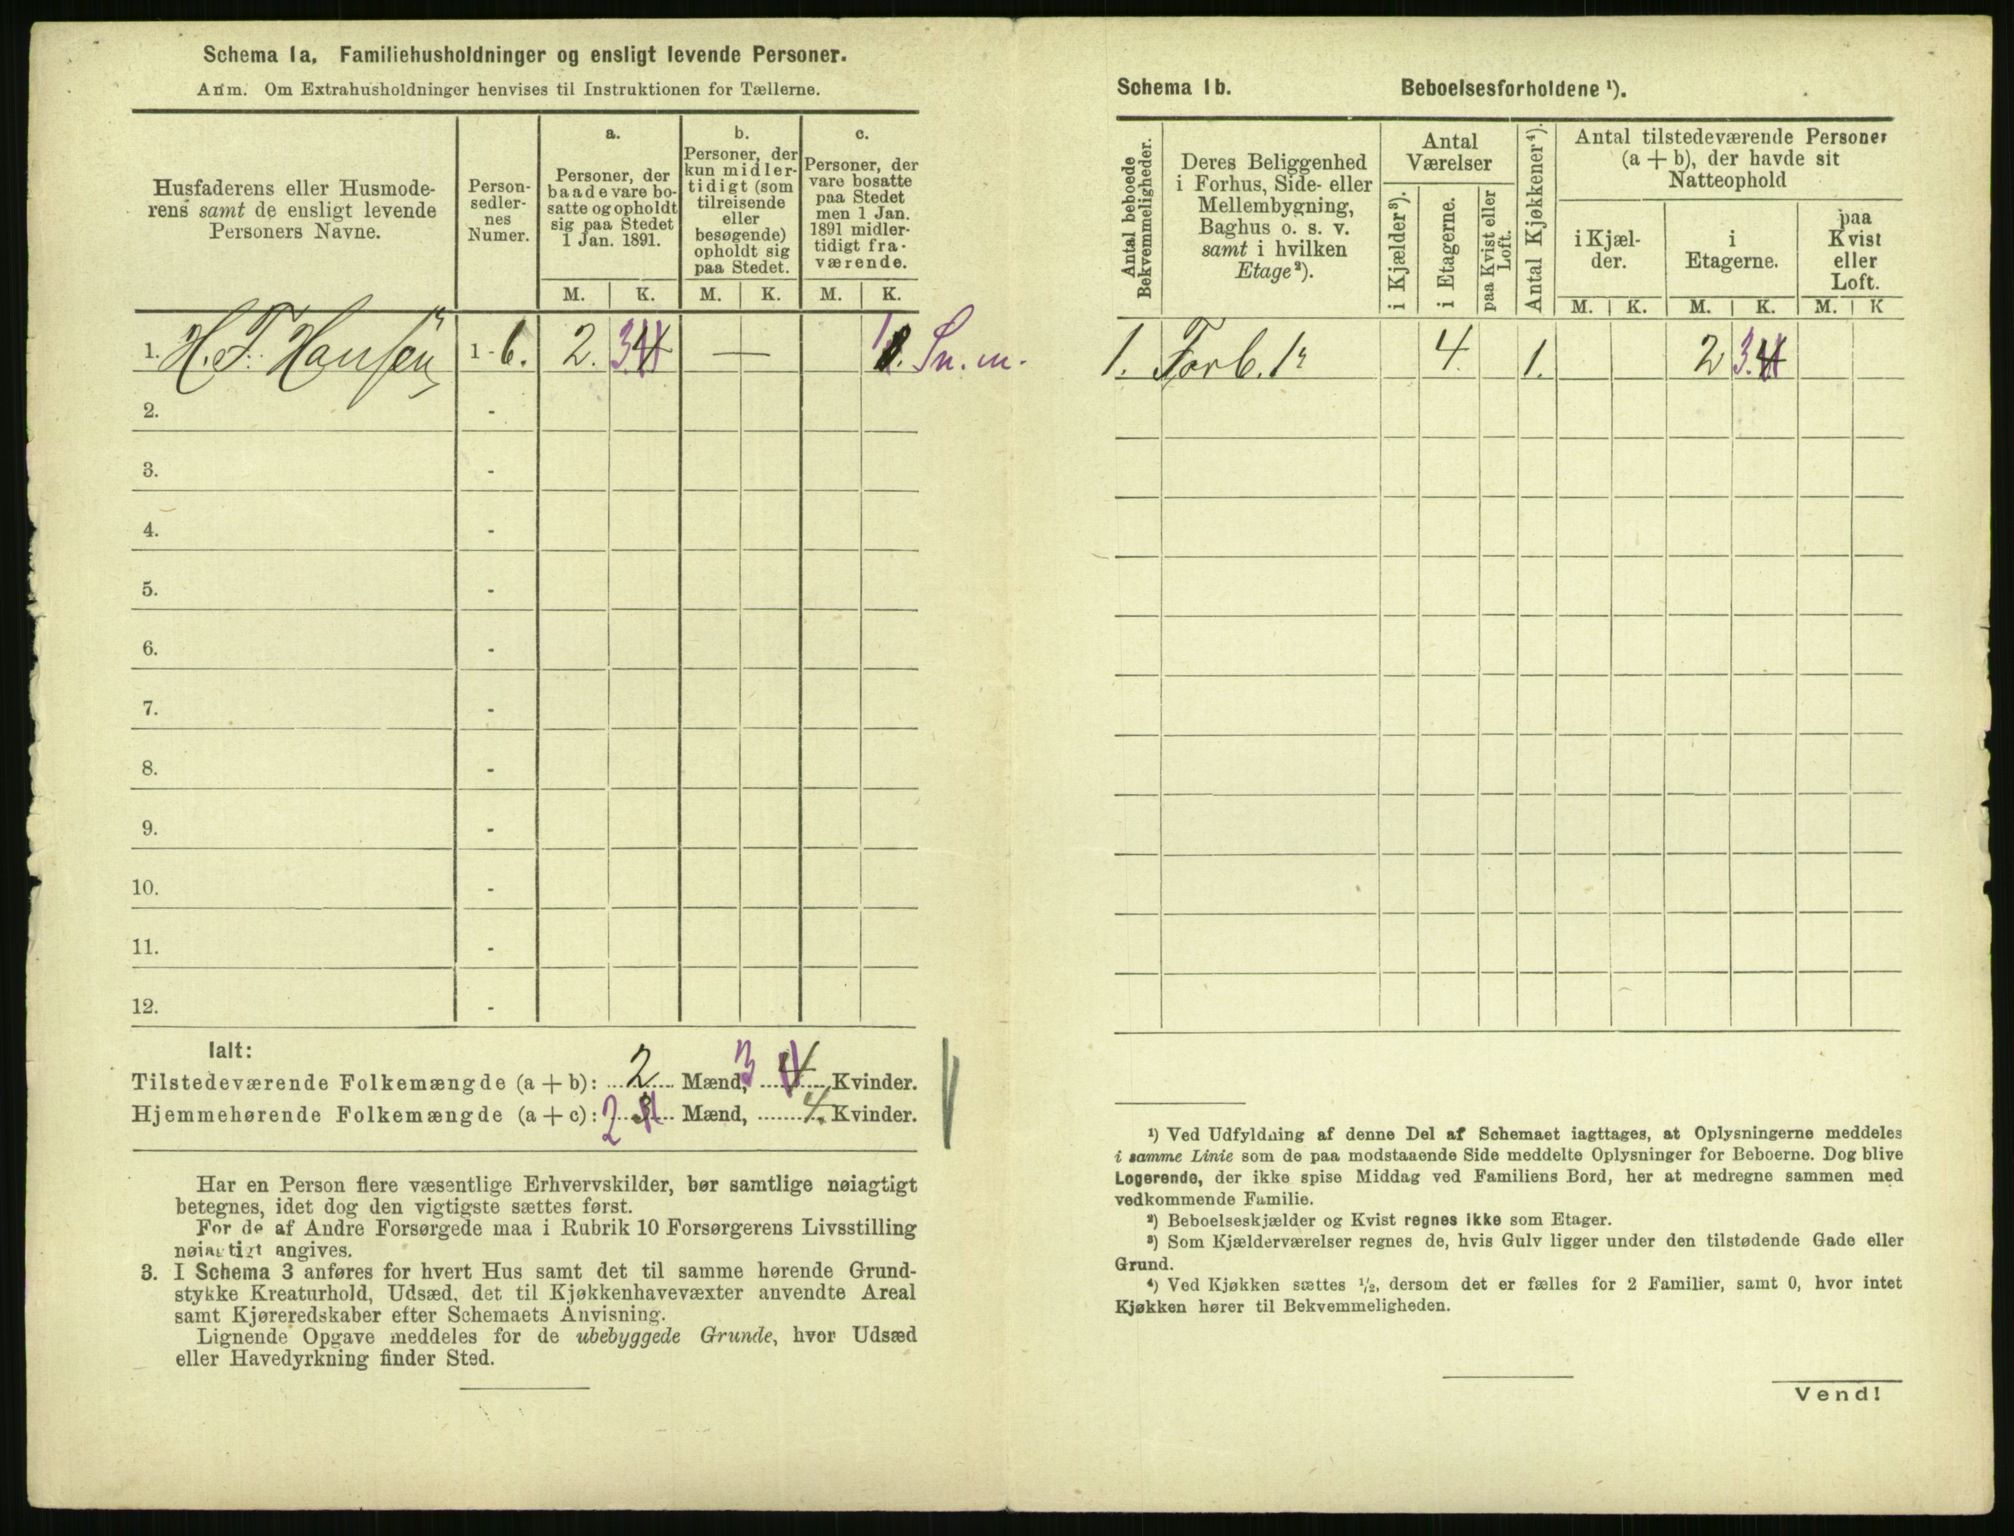 Schema 1a. Familiehusholdninger og ensligt levende Personer.
Anm. Om Extrahusholdninger henvises til Instruktionen for Tællerne.
Husfaderens eller Husmode-
rens samt de ensligt levende
Personers Navne.
Person-
sedler-
nes
Numer.
a.
Personer, der
baade vare bo-
satte og opholdt
sig paa Stedet
1 Jan. 1891.
b.
Personer, der
kun midler-
tidigt (som
tilreisende
eller
besøgende)
opholdt sig
paa Stedet.
c.
Personer, der
vare bosatte
paa Stedet
men 1 Jan.
1891 midler-
tidigt fra-
værende.
M. K. M. K. M. K.
1. H. F. Hansen 1 - 6. 2. 3 4 — 1 1. Sn. m.
2. -
3. -
4. -
5. -
6. -
7. -
8. -
9. -
10. -
11. -
12. -
Ialt:
Tilstedeværende Folkemængde (a + b): 2 Mænd, 3 4 Kvinder.
Hjemmehørende Folkemængde (a + c): 2 3 Mænd, 4. Kvinder.
Har en Person flere væsentlige Erhvervskilder, bør samtlige nøiagtigt
betegnes, idet dog den vigtigste sættes først.
For de af Andre Forsørgede maa i Rubrik 10 Forsørgerens Livsstilling
nøiagtigt angives.
3. I Schema 3 anføres for hvert Hus samt det til samme hørende Grund-
stykke Kreaturhold, Udsæd, det til Kjøkkenhavevæxter anvendte Areal
samt Kjøreredskaber efter Schemaets Anvisning.
Lignende Opgave meddeles for de ubebyggede Grunde, hvor Udsæd
eller Havedyrkning finder Sted.
Schema 1b. Beboelsesforholdene ¹).
Antal beboede
Bekvemmeligheder.
Deres Beliggenhed
i Forhus, Side- eller
Mellembygning,
Baghus o. s. v.
samt i hvilken
Etage ²).
Antal
Værelser
i Kjælder ³).
i Etagerne.
paa Kvist eller
Loft.
Antal Kjøkkener ⁴).
Antal tilstedeværende Personer
(a + b), der havde sit
Natteophold
i Kjæl-
der.
i
Etagerne.
paa
Kvist
eller
Loft.
M. K. M. K. M. K
1. Forb. 1 4 1. 2 3. 4
¹) Ved Udfyldning af denne Del af Schemaet iagttages, at Oplysningerne meddeles
i samme Linie som de paa modstaaende Side meddelte Oplysninger for Beboerne. Dog blive
Logerende, der ikke spise Middag ved Familiens Bord, her at medregne sammen med
vedkommende Familie.
²) Beboelseskjælder og Kvist regnes ikke som Etager.
³) Som Kjælderværelser regnes de, hvis Gulv ligger under den tilstødende Gade eller
Grund.
⁴) Ved Kjøkken sættes ½, dersom det er fælles for 2 Familier, samt 0, hvor intet
Kjøkken hører til Bekvemmeligheden.
Vend!